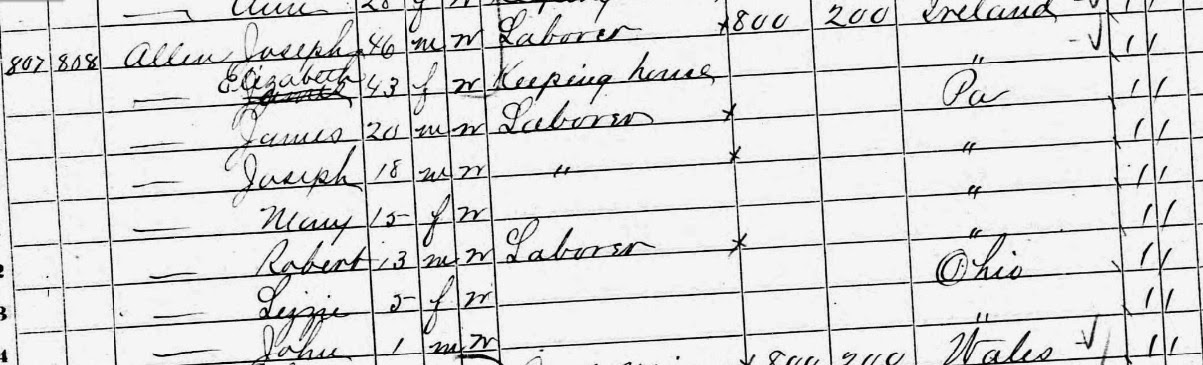 Keeping
807 808 Allen Joseph 46 m w Laborer x800 200 Ireland √ 1 1
— Elizabeth 43 f w Keeping house " -√ 1 1
— James 20 m w Laborer x Pa 1 1
— Joseph 18 m w " x " 1 1
— Mary 15 f w " 1 1
— Robert 13 m w Laborer x " 1 1
— Lizzie 5 f w Ohio 1 1
— John 1 m w " 1 1
x800 200 Wales √ 1 1